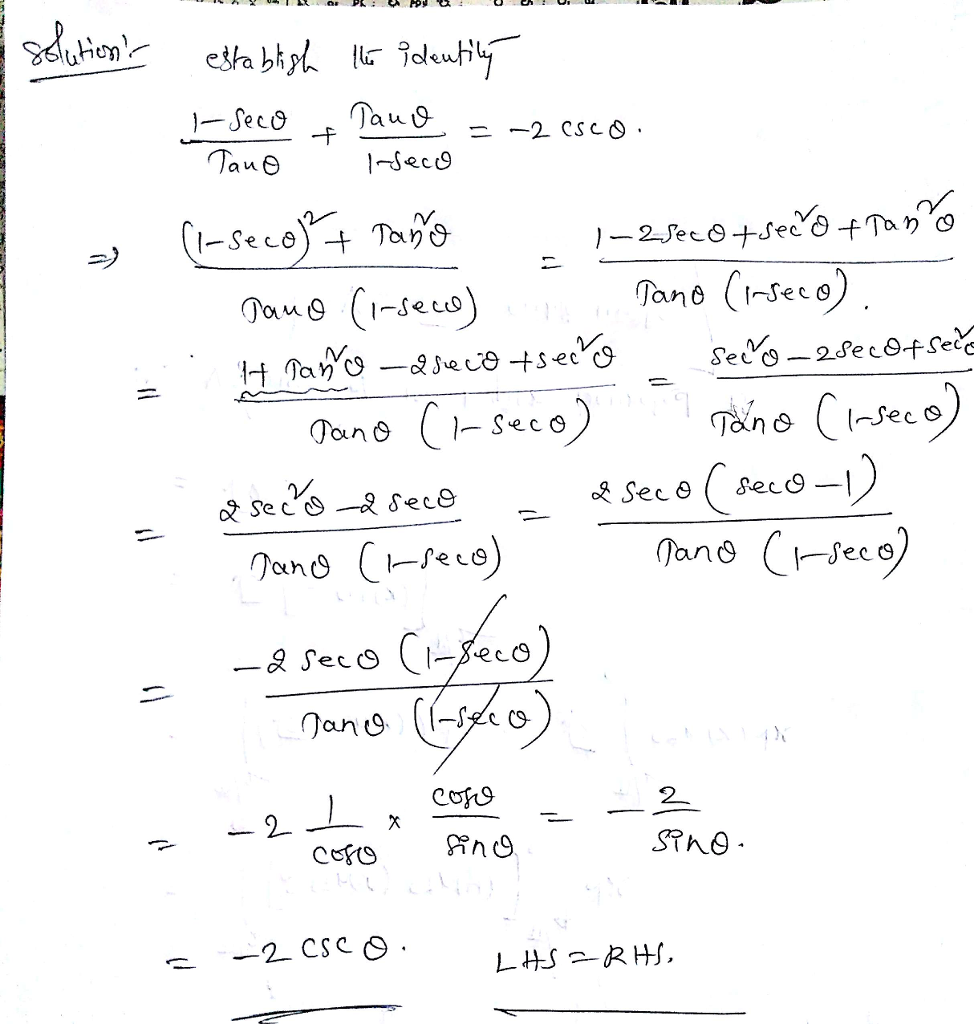 Solution:-   establish the identity
(1-Secθ)/Tanθ + Tanθ/(1-Secθ) = -2 cscθ.
⇒ ((1-Secθ)² + Tan²θ)/(Tanθ (1-Secθ)) = (1-2Secθ+Sec²θ+Tan²θ)/(Tanθ (1-Secθ)).
= (1+Tan²θ-2Secθ+Sec²θ)/(Tanθ (1-Secθ)) = (Sec²θ-2Secθ+Sec²θ)/(Tanθ (1-Secθ))
= (2Sec²θ-2Secθ)/(Tanθ (1-Secθ)) = (2Secθ (Secθ-1))/(Tanθ (1-Secθ))
= (-2Secθ (1-Secθ))/(Tanθ (1-Secθ))
= -2 1/cosθ × cosθ/sinθ = -2/sinθ.
= -2 cscθ.   LHS = RHS.